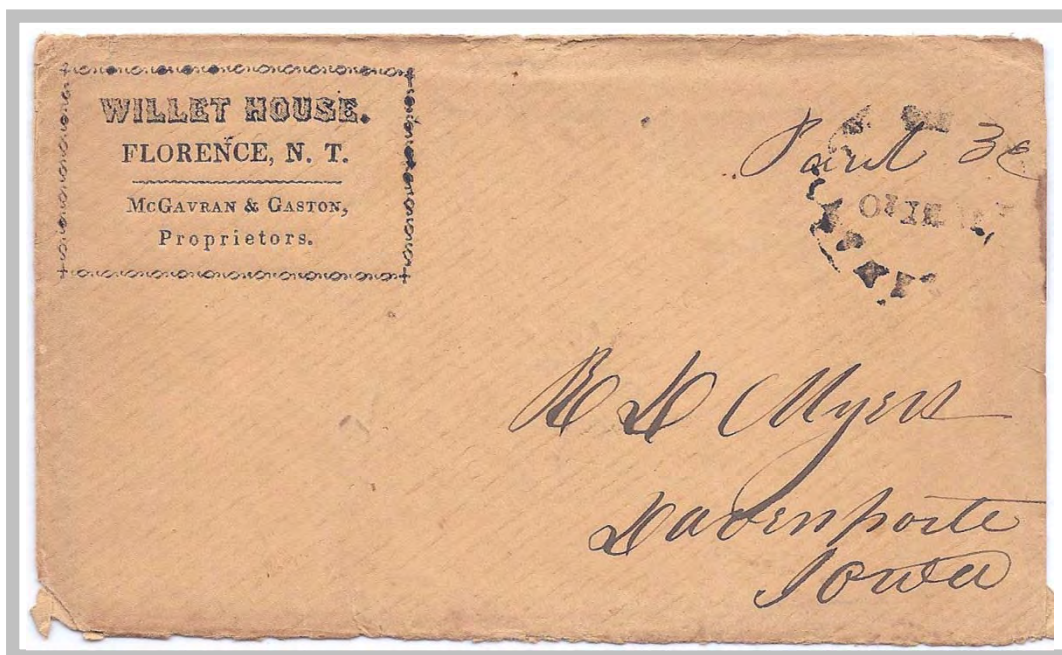 WILLET HOUSE.
FLORENCE, N. T.
McGAVRAN & GASTON,
Proprietors.
Paid 3c
Myers
Davenporte
Iowa